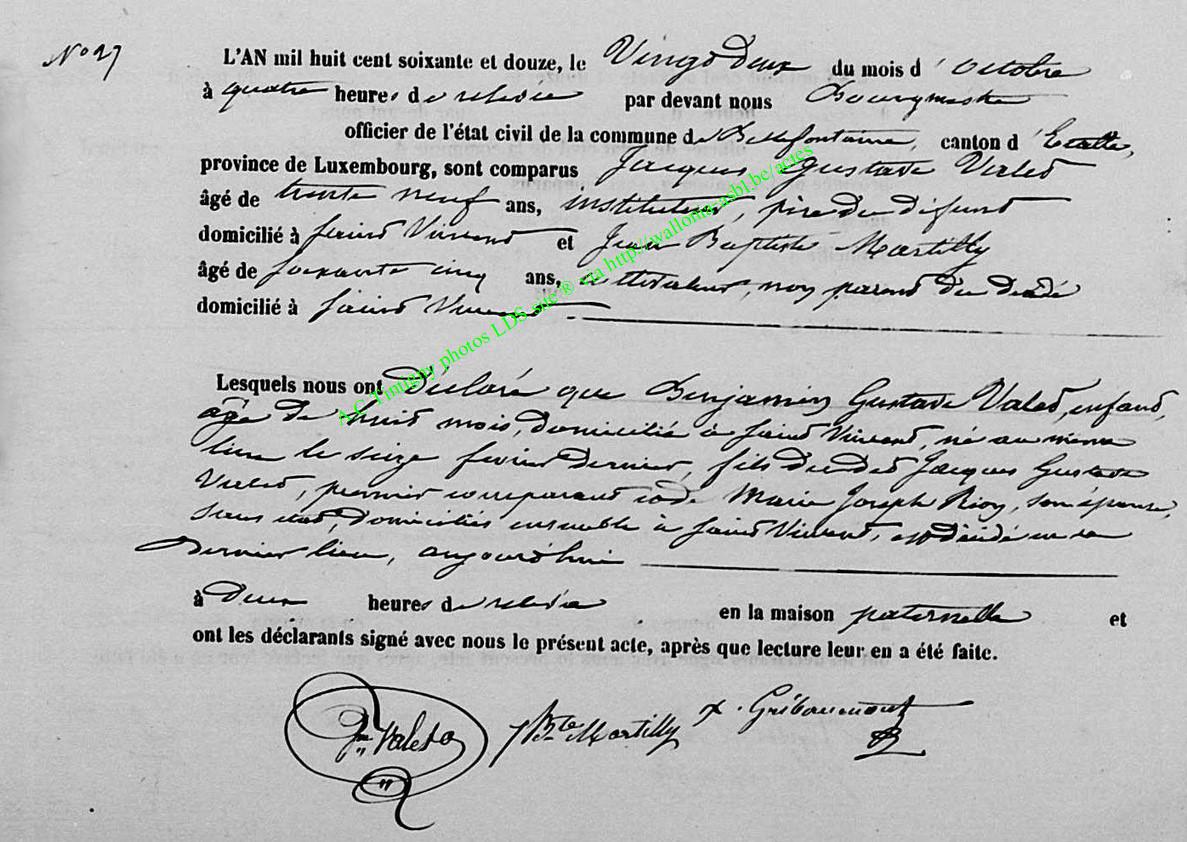 N° 27
L'AN mil huit cent soixante et douze, le Vingt Deux du mois d'octobre
à quatre heures de relevée par devant nous Bourgmestre
officier de l'état civil de la commune de Bellefontaine, canton d'Etalle,
province de Luxembourg, sont comparus Jacques Gustave Valet
âgé de trente neuf ans, instituteur, père du défunt
domicilié à Saint Vincent et Jean Baptiste Martilly
âgé de soixante cinq ans, cultivateur, non parent du décédé
domicilié à Saint Vincent
Lesquels nous ont déclaré que Benjamin Gustave Valet, enfant,
âgé de huit mois, domicilié à Saint Vincent, né au même
lieu le seize février dernier, fils dudit Jacques Gustave
Valet, premier comparant et de Marie Joseph Rion, son épouse,
sans état, domiciliés ensemble à Saint Vincent, est décédé en ce
dernier lieu, aujourd'hui
à Deux heures de relevée en la maison paternelle et
ont les déclarants signé avec nous le présent acte, après que lecture leur en a été faite.
Valet JBte Martilly x. Gribaumont
A.C. Tintigny photos LDS site ® via http://wallonia-asbl.be/actes